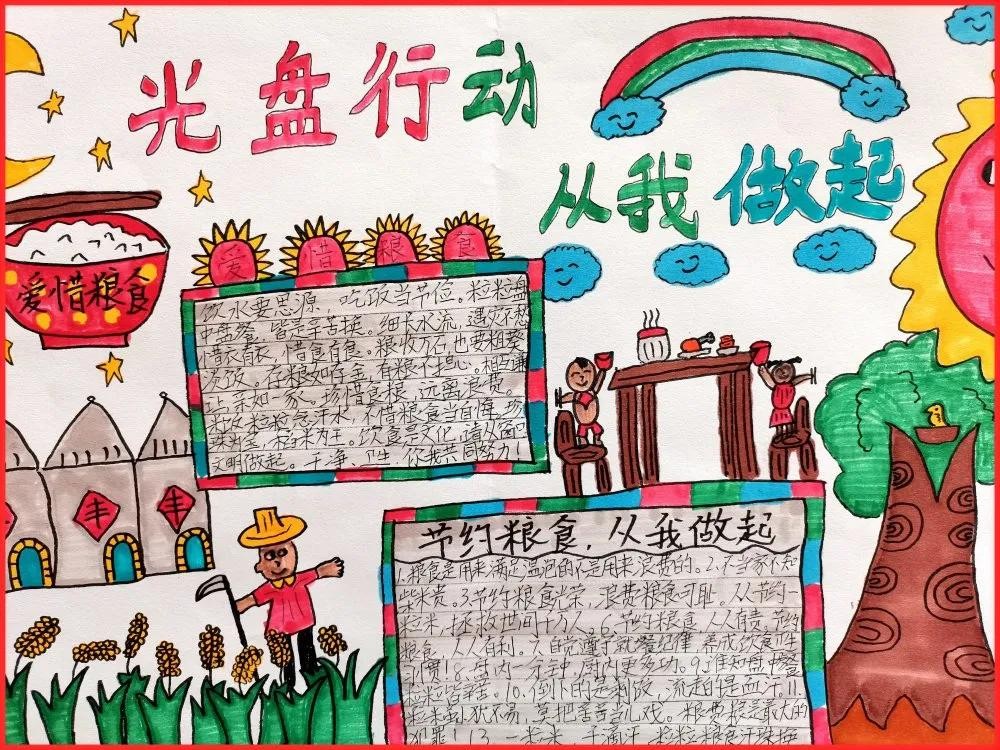 光盘行动
从我做起
爱惜粮食
爱惜粮食
饮水要思源 吃饭当节俭。粒粒盘
中盘餐,皆是辛苦换。细长水流,遇灾不愁
惜衣有衣,惜食有食。粮收万石,也要粗茶
淡饭。存粮如存金,有粮不担心。相互谦
让亲如一家,珍惜食粮,远离浪费。
光收粒粒念汗水,不惜粮食当自悔,珍
珠为金,稻米为王。饮食是文化,请从
文明做起。干净、卫生,你我共同努力!
丰
丰
节约粮食,从我做起
1.粮食是用来满足温饱的不是用来浪费的。2.不当家不知
柴米贵。3.节约粮食光荣,浪费粮食可耻。从节约一
粒米,拯救世间千万人。6.节约粮食 人人有责。节约
粮食,人人有利。7.自觉遵守就餐纪律 养成饮食卫生
习惯!8.盘内一分钟,厨内更多功。9.谁知盘中餐
粒粒皆辛苦。10.倒下的是剩饭,流走的是血汗。11.
粒米 犹不易,莫把辛苦当儿戏。粮费粮是最大的
犯罪!13.一粒米,千滴汗,粒粒粮食汗珠换